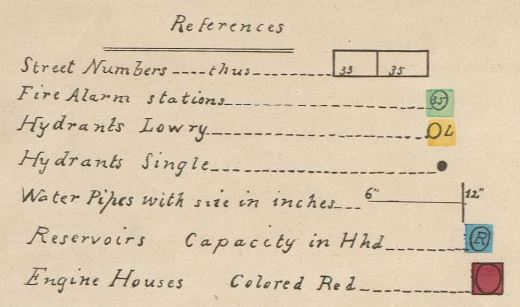 References
Street Numbers ---- thus -------- 33 35
Fire Alarm stations 35
Hydrants Lowry OL
Hydrants Single
Water Pipes with size in inches 6" 12"
Reservoirs Capacity in Hhd R
Engine Houses Colored Red